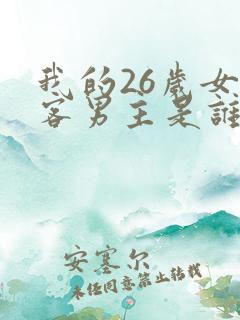 我的26歲女
客男主是誰
安塞尔
未经同意禁止转载